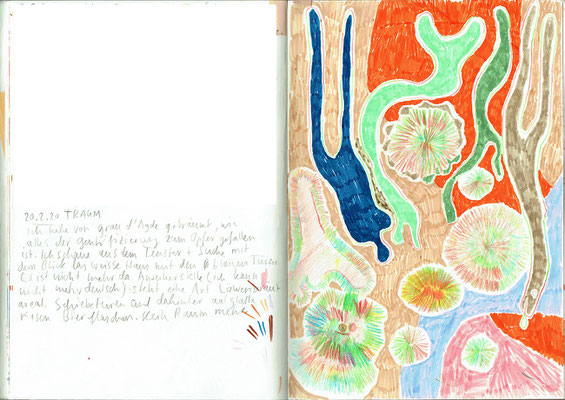 20.2.20 TRAUM
ich habe von Grau d'Agde geträumt, wie
alles der gentrifizierung zum Opfer gefallen
ist. Ich schaue aus dem Fenster + suche mit
dem Blick das weisse Haus mit den blauen Türen
Es ist nicht mehr da. An der Stelle (ich kann
nicht mehr deutsch) steht eine Art
areal. Schiebetüren und dahinter
Riesen Bierflaschen. Kein Raum mehr